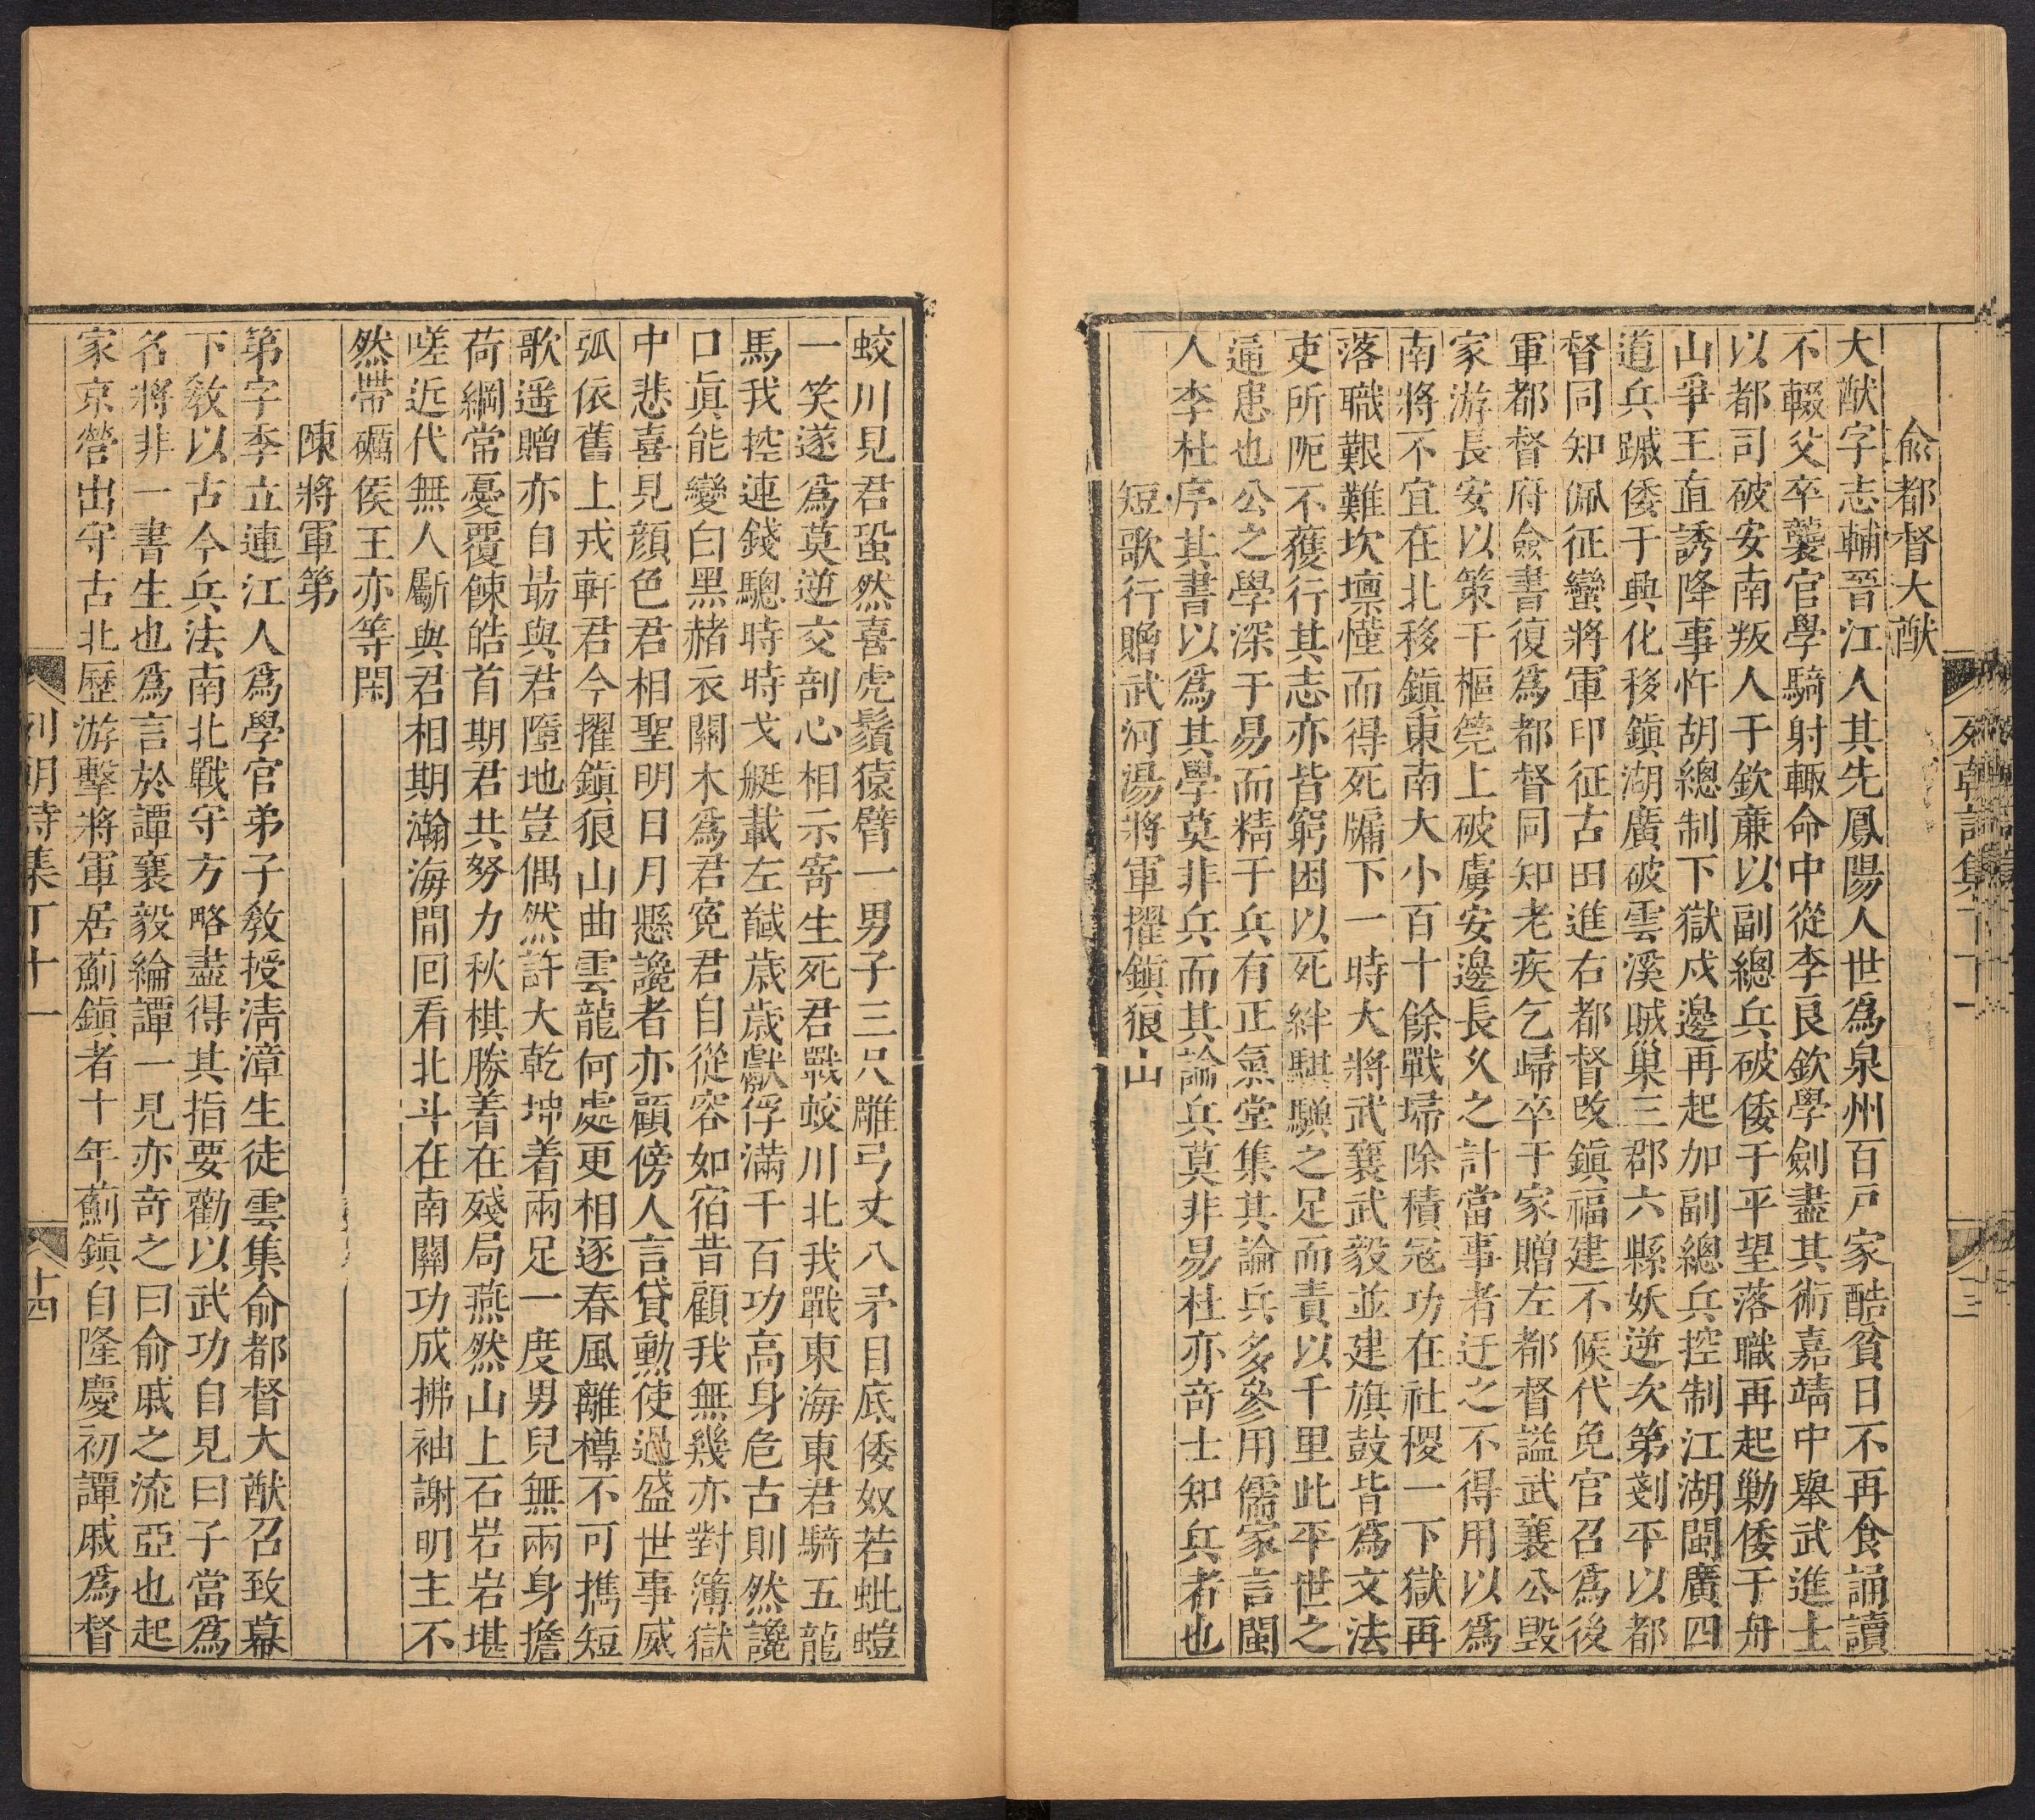 列朝詩集丁十一
俞都督大猷
大猷字志輔晉江人其先鳳陽人世爲泉州百戸家酷貧日不再食誦讀
不輟父卒襲官學騎射輒命中從李良欽學劍盡其術嘉靖中舉武進士
以都司破安南叛人于欽亷以副總兵破倭于平望落職再起勦倭于舟
山爭王直誘降事忤胡總制下獄戍邊再起加副總兵控制江湖閩廣四
道兵蹴倭于興化移鎭湖廣破雲溪賊巢三郡六縣妖逆次第剗平以都
督同知佩征蠻將軍印征古田進右都督改鎭福建不候代免官召爲後
軍都督府僉書復爲都督同知老疾乞歸卒于家贈左都督諡武襄公毁
家游長安以策干樞筦上破虜安邊長久之計當事者迂之不得用以爲
南將不宜在北移鎭東南大小百十餘戰埽除積寇功在社稷一下獄再
落職艱難坎壈僅而得死牖下一時大將武襄武毅並建旗鼓皆爲文法
吏所阨不獲行其志亦皆窮困以死絆騏驥之足而責以千里此平世之
通患也公之學深于易而精于兵有正氣堂集其論兵多參用儒家言閩
人李杜序其書以爲其學莫非兵而其論兵莫非易杜亦奇士知兵者也
短歌行贈武河湯將軍擢鎭狼山
蛟川見君蛩然喜虎鬚猿臂一男子三尺雕弓丈八矛目底倭奴若蚍螘
一笑遂爲莫逆交剖心相示寄生死君戰蛟川北我戰東海東君騎五龍
馬我控連錢驄時時戈艇載左馘歲歲獻俘滿千百功高身危古則然讒
口眞能變白黑赭衣關木爲君寃君自從容如宿昔顧我無幾亦對簿獄
中悲喜見顔色君相聖明日月懸讒者亦顧傍人言貸勲使過盛世事威
弧依舊上戎軒君今擢鎭狼山曲雲龍何處更相逐春風離樽不可攜短
歌遥贈亦自朂與君墮地豈偶然許大乾坤着兩足一度男兒無兩身擔
荷綱常憂覆餗皓首期君共努力秋棋勝着在殘局燕然山上石岩岩堪
嗟近代無人斸與君相期瀚海間回看北斗在南關功成拂袖謝明主不
然帶礪侯王亦等閑
陳將軍第
第字季立連江人爲學官弟子教授淸漳生徒雲集俞都督大猷召致幕
下敎以古今兵法南北戰守方略盡得其指要勸以武功自見曰子當爲
名將非一書生也爲言於譚襄毅綸譚一見亦奇之曰俞戚之流亞也起
家京營出守古北歷游擊將軍居薊鎭者十年薊鎭自隆慶初譚戚爲督
列朝詩集丁十一
十四